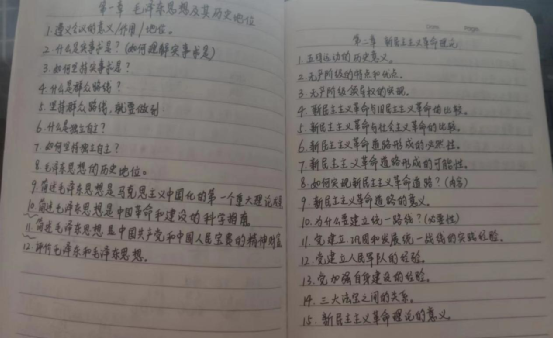 第一章 毛泽东思想及其历史地位
1. 遵义会议的意义/作用/地位。
2. 什么是实事求是？(如何理解实事求是)
3. 如何坚持实事求是？
4. 什么是群众路线？
5. 坚持群众路线，就要做到
6. 什么是独立自主？
7. 如何坚持独立自主？
8. 毛泽东思想的历史地位。
9. 简述毛泽东思想是马克思主义中国化的第一个重大理论成果
10. 简述毛泽东思想是中国革命和建设的科学指南
11. 简述毛泽东思想是中国共产党和中国人民宝贵的精神财富
12. 评价毛泽东和毛泽东思想。
第二章 新民主主义革命理论
1. 五四运动的历史意义。
2. 无产阶级的特点和优点。
3. 无产阶级领导权的实现。
4. 新民主主义革命与旧民主主义革命的比较。
5. 新民主主义革命与社会主义革命的比较。
6. 新民主主义革命道路形成的必然性。
7. 新民主主义革命道路形成的可能性。
8. 如何实现新民主主义革命道路？(内容)
9. 新民主主义革命道路的意义。
10. 为什么要建立统一战线？(必要性)
11. 党建立、巩固和发展统一战线的实践经验。
12. 党建立人民军队的经验。
13. 党加强自身建设的经验。
14. 三大法宝之间的关系。
15. 新民主主义革命理论的意义。